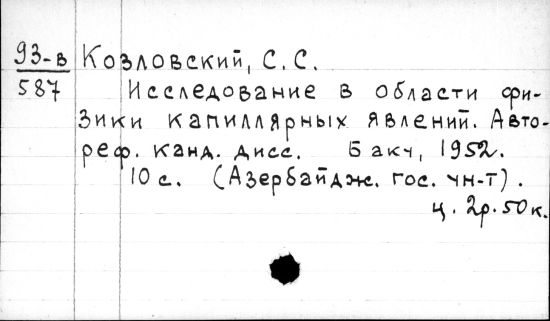 93-в Козловский, С. С.
587 Исследование в области фи-
зики капиллярных явлений. Авто-
реф. канд. дисс. Баку, 1952.
10 с. (Азербайдж. гос. ун-т).
ц. 2р. 50к.